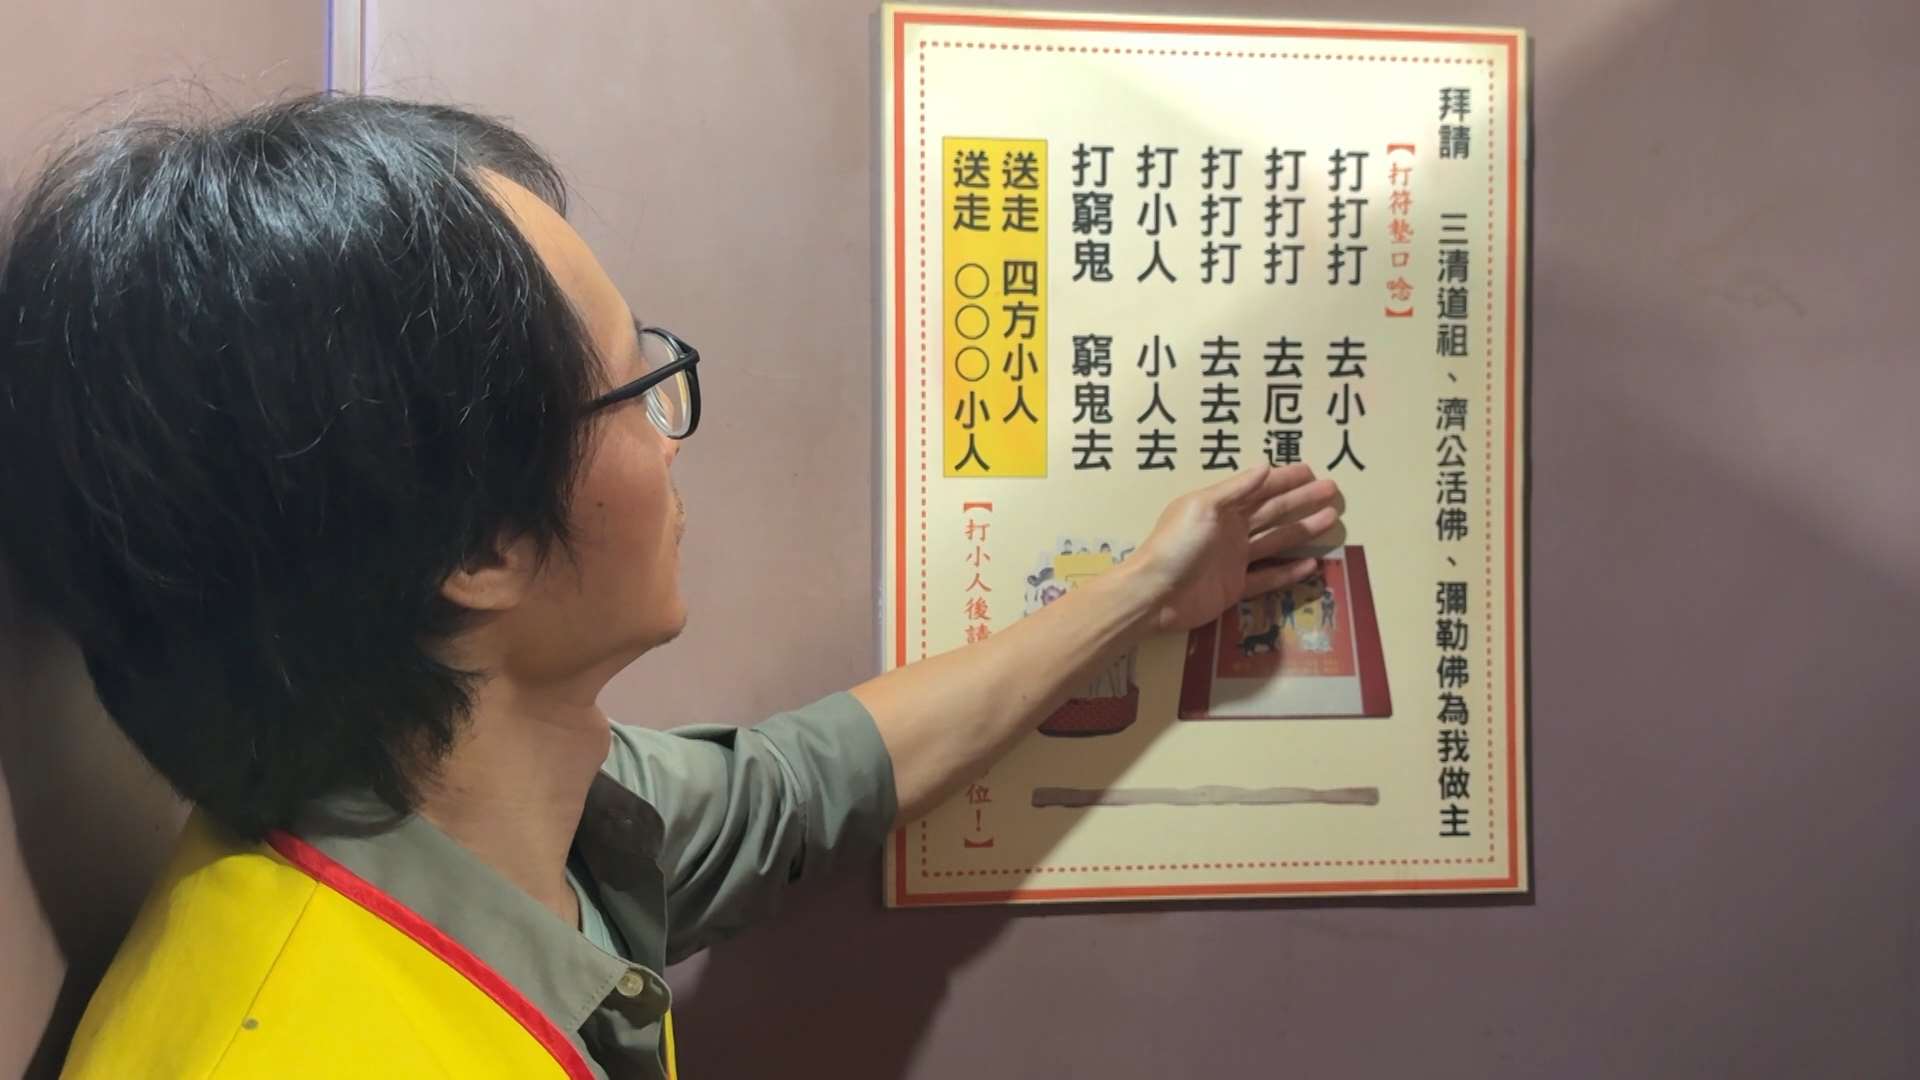 拜請 三清道祖、濟公活佛、彌勒佛為我做主
【打符墊口唸】
打打打 去小人
打打打 去厄運
打打打 去去去
打小人 小人去
打窮鬼 窮鬼去
送走 四方小人
送走 〇〇〇小人
【打小人後請
位！】